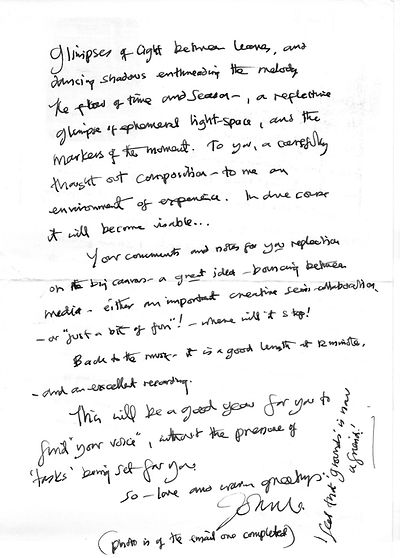 Glimpses of light between leaves, and
dancing shadows enthreading the melody
the flow of time and season -, a reflective
glimpse of ephemeral light-space, and the
markers of the moment. To you, a carefully
thought out composition - to me an
environment of experience. In due course
it will become visible...
Your comments and notes for you reflection
on the big canvas - a great idea - bouncing between
media - either an important creative semi-collaboration,
- or "just a bit of fun"! - where will it stop!
Back to the music - it is a good length at 12 minutes,
- and an excellent recording.
This will be a good year for you to
find 'your voice', without the pressure of
'tasks' being set for you
So - love and warm greetings.
(photo is of the small one completed)
I feel that 'grounds' is now
a friend!